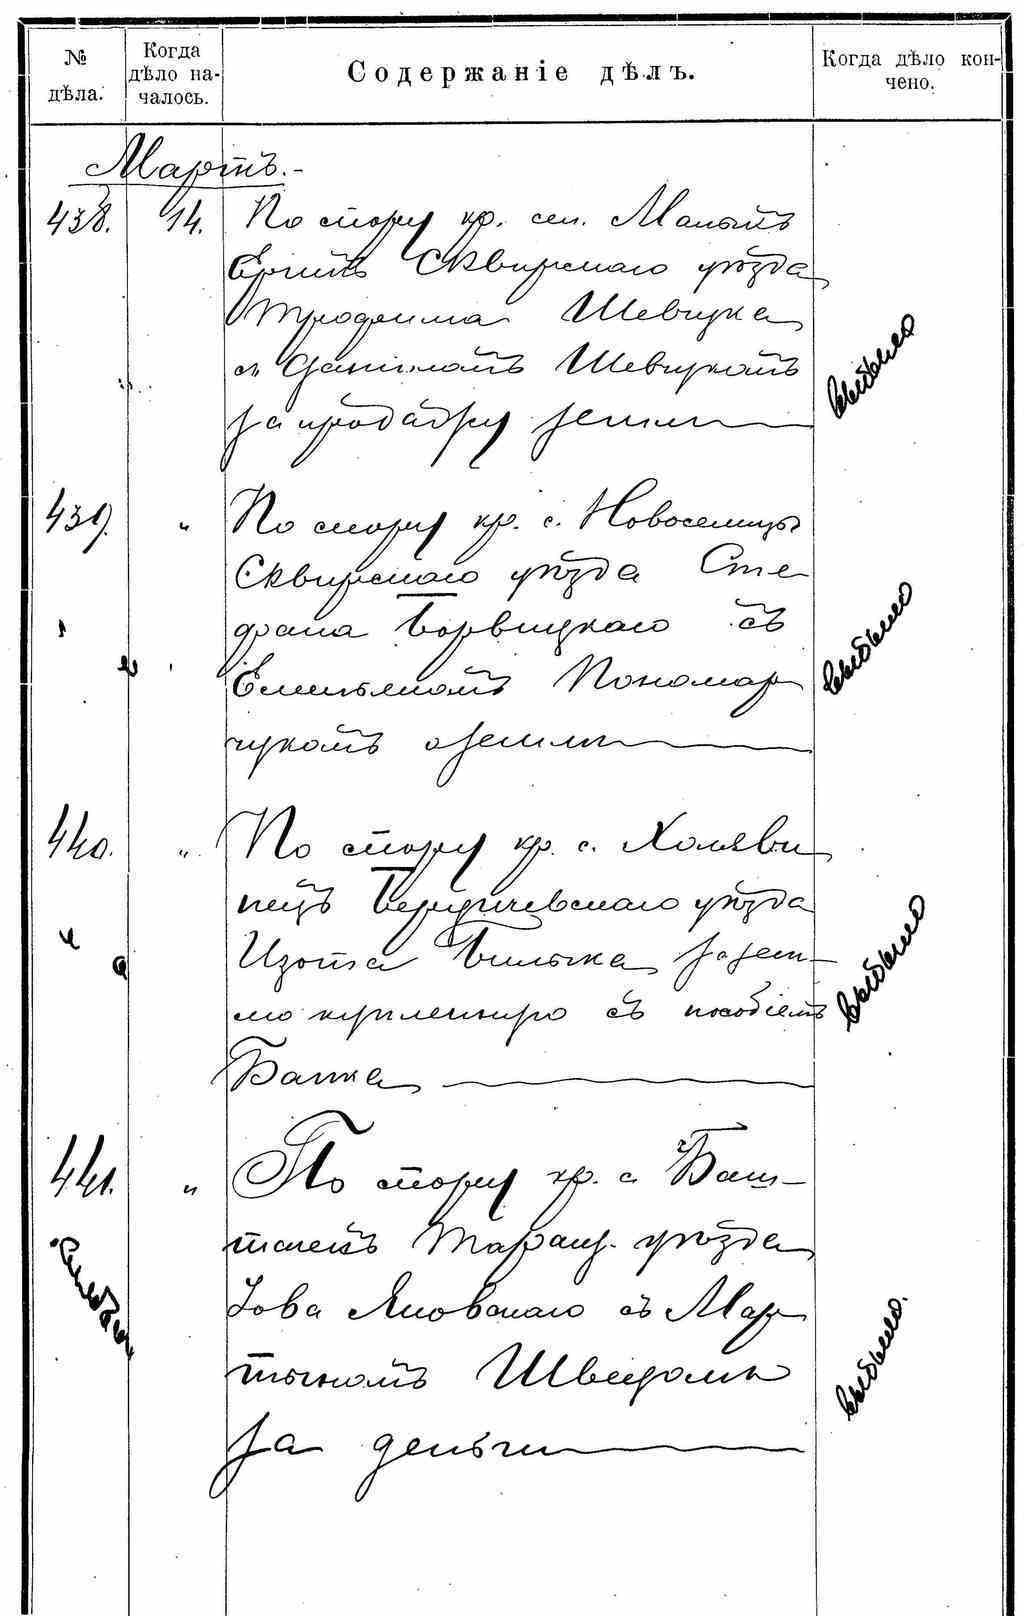 № дѣла.
Когда дѣло началось.
Содержаніе дѣлъ.
Когда дѣло кончено.
Мартъ.-
438. 14. По спору кр. сел. Малыхъ
Ерчикъ Сквирскаго уѣзда
Трофима Шевчука
съ Даниломъ Шевчукомъ
за продажу земли
выбыло
439. „ По спору кр. с. Новоселицы
Сквирскаго уѣзда Сте-
фана Борвицкаго съ
Емельяномъ Пономар
чукомъ о земли
выбыло
440. „ По спору кр. с.
нецъ Бердичевскаго уѣзда
Изота за зем-
лю купленную съ пособіемъ
Банка
выбыло
441. „ По спору кр. с. Баш-
течекъ Таращ. уѣзда
Іова Яновскаго съ Мар
тыномъ Шведомъ
за деньги
выбыло.